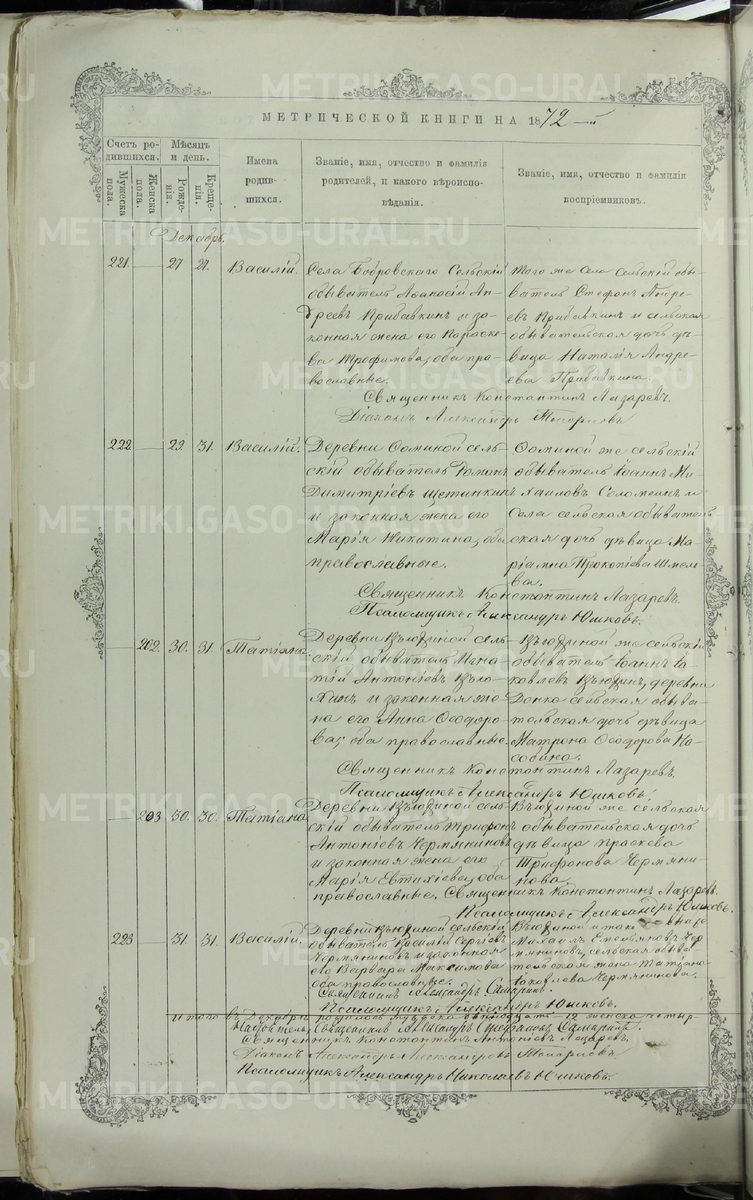 МЕТРИЧЕСКОЙ КНИГИ НА 1872
Счетъ родившихся.
Мужеска пола.
Женска пола.
Мѣсяцъ и день.
Рожденія.
Крещенія.
Имена родившихся.
Званіе, имя, отчество и фамилія родителей, и какого вѣроисповѣданія.
Званіе, имя, отчество и фамилія воспріемниковъ.
Декабрь.
221. 27 27. Василій.
Села Бобровскаго Сельскій
обыватель Аѳанасій Ан-
дреевъ Прибавкинъ и за-
конная жена его Параске-
ва Трофимова, оба пра-
вославные.
Того же села сельскій обы-
ватель Стефанъ Андре-
евъ Прибавкинъ и сельская
обывательская дочь дѣ-
вица Наталія Андре-
ева Прибавкина.
Священникъ Константинъ Лазаревъ.
Діаконъ Александръ Топорковъ
222. 29. 31. Василій.
Деревни Ѳоминой сель-
скій обыватель Романъ
Димитріевъ Щетинкинъ
и законная жена его
Марія Никитина, оба
православные.
Ѳоминой же сельскій
обыватель Іоаннъ Ми-
хаиловъ Соломеинъ и
Села сельская обыватель-
ская дочь дѣвица Ма-
ріамна Прокопіева
Священникъ Константинъ Лазаревъ.
Псаломщикъ Александръ Юшковъ.
202. 30. 31. Татіана
Деревни Вьюхиной сель-
скій обыватель Игна-
тій Антоніевъ Вью-
хинъ и законная же-
на его Анна Ѳеодоро-
ва; оба православные.
Вьюхиной же сельскій
обыватель Іоаннъ Іа-
ковлевъ Вьюхинъ, деревни
сельская обыва-
тельская дочь дѣвица
Матрона Ѳеодорова
Священникъ Константинъ Лазаревъ.
Псаломщикъ Александръ Юшковъ.
203 30. 30. Татіана
Деревни Вьюхиной сель-
скій обыватель Трифонъ
Антоніевъ Чермяниновъ
и законная жена его
Марія Евтихіева, оба
православные.
Вьюхиной же сельская
обывательская дочь
дѣвица Праскева
Трифонова Чермяни-
нова.
Священникъ Константинъ Лазаревъ.
Псаломщикъ Александръ Юшковъ.
223 31. 31. Василій
Деревни Вьюхиной сельскій
обыватель Василій Сергіевъ
Чермяниновъ и законная
его Варвара Максимова
оба православные.
Вьюхиной
Михаилъ Емельяновъ Чер-
мяниновъ, сельская обыва-
тельская жена Татіана
Іаковлева Чермянинова.
Священникъ Александръ
Псаломщикъ Александръ Юшковъ.
Итого въ Декабрѣ родилось мужеска двѣнадцать 12 женска четыр-
Священникъ Александръ
Священникъ Константинъ Антоніевъ Лазаревъ.
Діаконъ Александръ Александровъ Топорковъ
Псаломщикъ Александръ Николаевъ Юшковъ.
METRIKI.GASO-URAL.RU